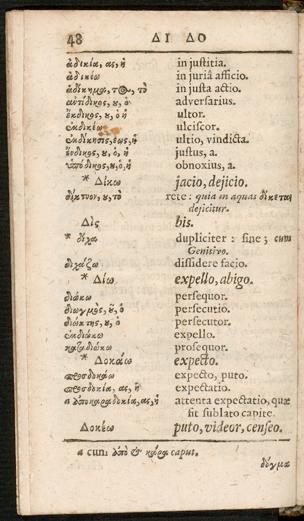 48 ΔΙ ΔΟ
ἀδικία, ας, ἡ in justitia.
ἀδικέω in juriâ afficio.
ἀδίκημα, τος, τὸ in justa actio.
ἀντίδικος, ου, ὁ adversarius.
ἔκδικος, ου, ὁ ἡ ultor.
ἐκδικέω ulciscor.
ἐκδίκησις, εως, ἡ ultio, vindicta.
ἔνδικος, ου, ὁ, ἡ justus, a.
ὑπόδικος, ου, ὁ, ἡ obnoxius, a.
* Δίκω jacio, dejicio.
δίκτυον, ου, τὸ rete: quia in aquas δίκεται
dejicitur.
Δὶς bis.
* δίχα dupliciter: sine; cum
Genitivo.
διχάζω dissidere facio.
* Δίω expello, abigo.
διώκω persequor.
διωγμὸς, ου, ὁ persecutio.
διώκτης, ου, ὁ persecutor.
ἐκδιώκω expello.
καταδιώκω prosequor.
* Δοκάω expecto.
προσδοκάω expecto, puto.
προσδοκία, ας, ἡ expectatio.
a ἀποκαραδοκία, ας, ἡ attenta expectatio, quæ
fit sublato capite.
Δοκέω puto, videor, censeo.
a cum ἀπὸ & κάρα caput.
δόγμα